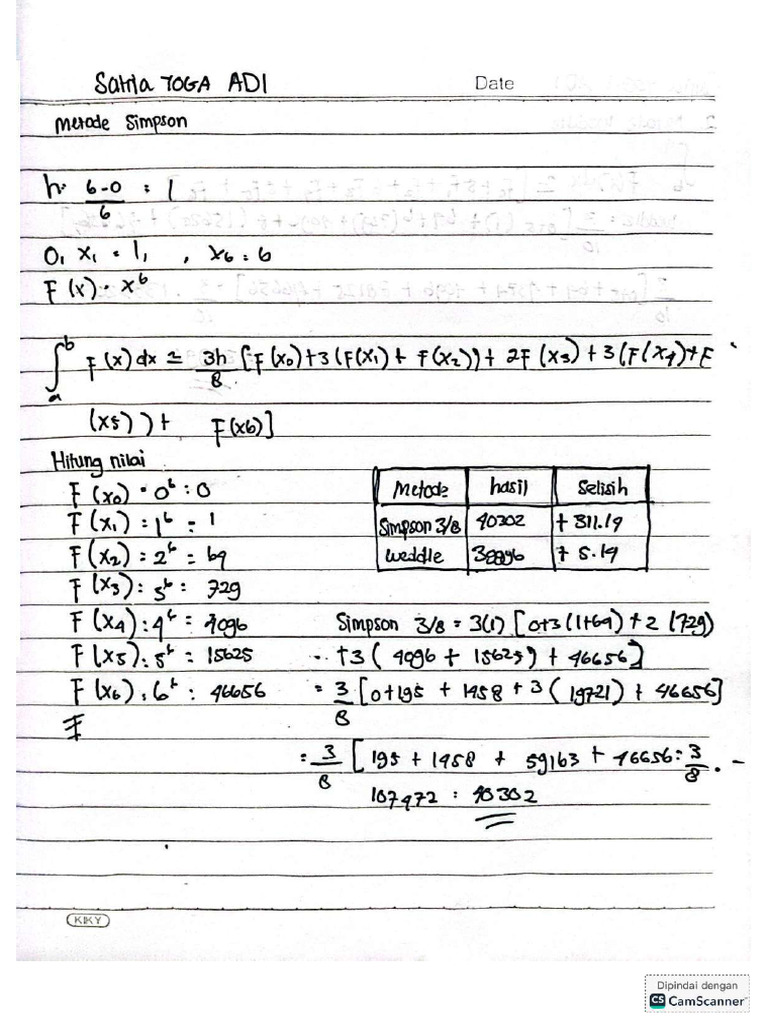 Satria YOGA ADI
Date
Metode Simpson
h: 6-0/6 : 1
0, x₁ = 1, , x₆ = 6
F(x) = x⁶
∫ₐᵇ F(x) dx ≃ 3h/8 [F(x₀)+3(F(x₁)+F(x₂))+2F(x₃)+3(F(x₄)+F
(x₅))+ F(x₆)]
Hitung nilai
F(x₀) = 0⁶ : 0
F(x₁) = 1⁶ = 1
F(x₂) = 2⁶ = 64
F(x₃) : 3⁶ = 729
F(x₄) : 4⁶ = 4096
F(x₅) : 5⁶ = 15625
F(x₆) : 6⁶ : 46656
F
Metode hasil Selisih
Simpson 3/8 40302 + 311.14
weddle + 5.14
Simpson 3/8 = 3(1) [0+3(1+64)+2(729)
+3(4096 + 15625) + 46656]
= 3/8 [0+195 + 1458 + 3(19721) + 46656]
= 3/8 [195 + 1458 + 59163 + 46656 : 3/8 . -
107472 : 40302
KIKY
Dipindai dengan
CS CamScanner